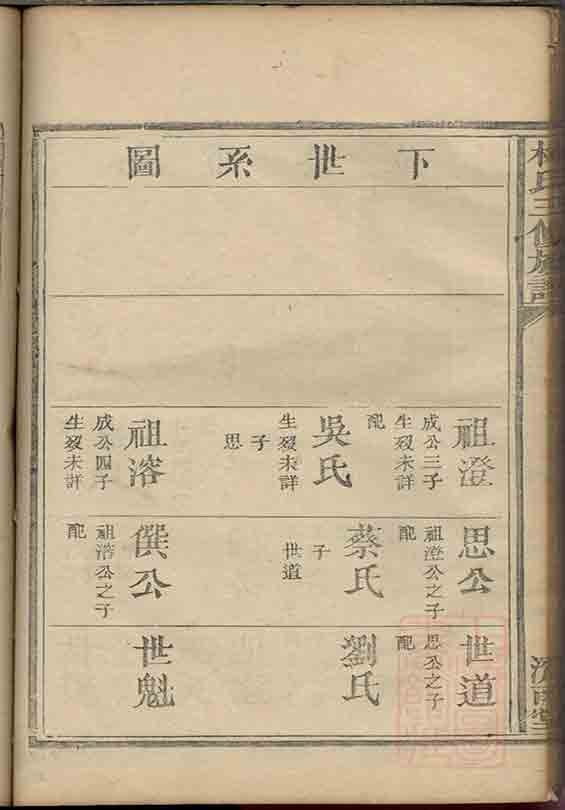 下世系圖
祖澄
成公三子
生歿未詳
配
吳氏
生歿未詳
子
思
祖溶
成公四子
生歿未詳
思公
祖澄公之子
配
蔡氏
子
世道
僎公
祖浩公之子
配
世道
思公之子
配
劉氏
世魁
氏三修族譜
堂